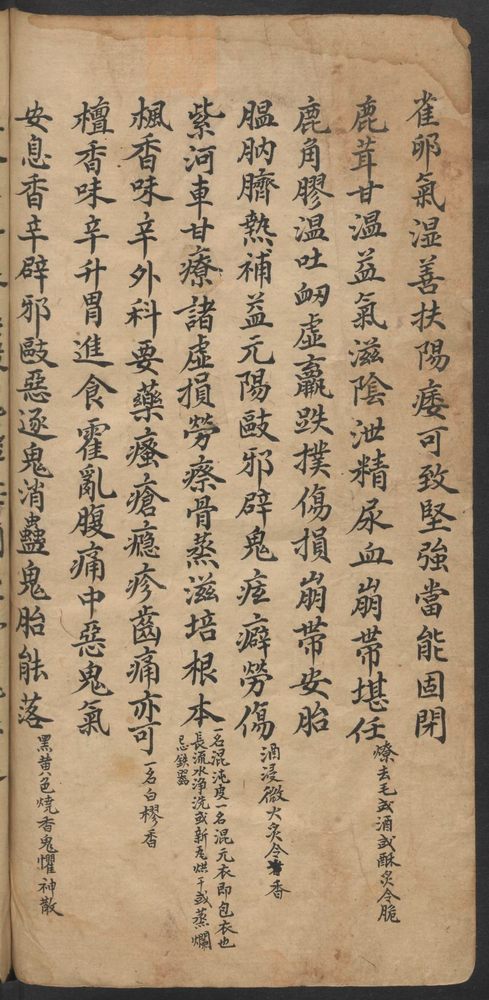 雀卵氣溫善扶陽痿可致堅強當能固閉
鹿茸甘溫益氣滋陰泄精尿血崩帶堪任
燎去毛或酒或酥炙令脆
鹿角膠溫吐衄虛羸跌撲傷損崩帶安胎
膃肭臍熱補益元陽敺邪辟鬼痃癖勞傷
酒浸微火炙令香
紫河車甘療諸虛損勞瘵骨蒸滋培根本
一名混沌皮一名混元衣即包衣也
長流水净洗或新瓦烘干或蒸爛
忌鉄器
楓香味辛外科要藥瘙瘡癮疹齒痛亦可
一名白樛香
檀香味辛升胃進食霍亂腹痛中惡鬼氣
安息香辛辟邪敺惡逐鬼消蠱鬼胎能落
黑黄色燒香鬼懼神散